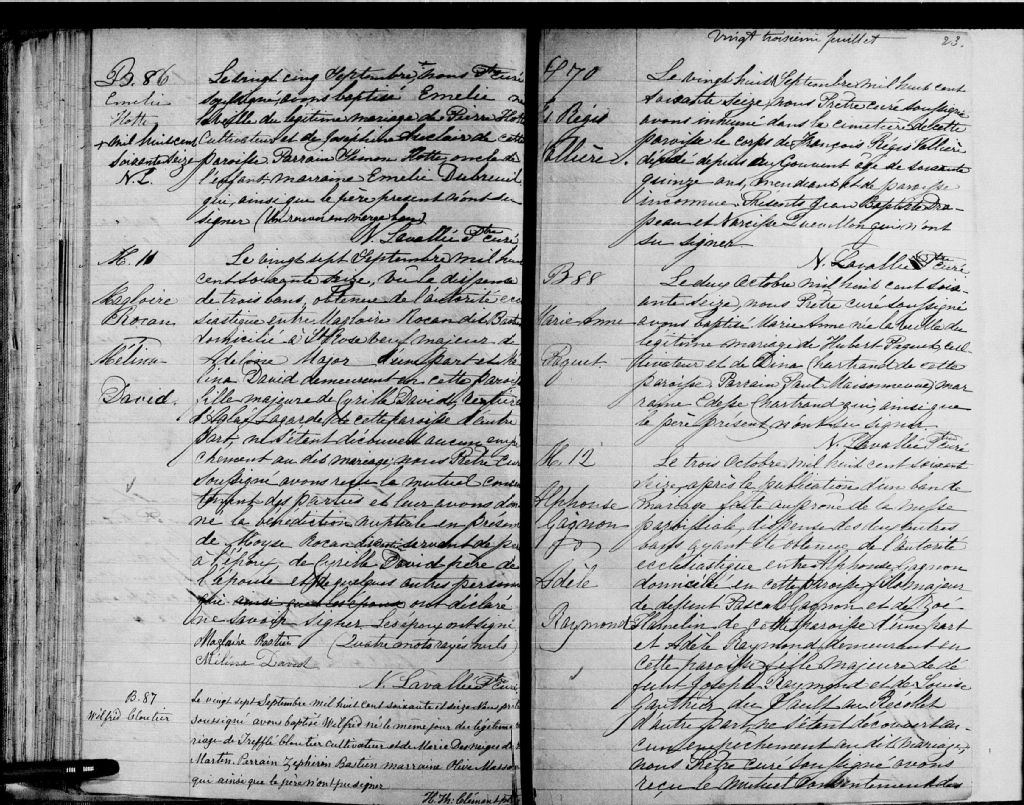 B. 86
Emelie
Hotte
+ mil huit cent
soixante seize
N. L.
Le vingt cinq Septembre + nous Ptre curé
soussigné, avons baptisé Emelie né
la veille du légitime mariage de Pierre Hotte
Cultivateur et de Joséphine Auclair de cette
paroisse. Parrain Simon Hotte oncle de
l'enfant, marraine Emelie Dubreuil
qui, ainsi que le père présent n'ont su
signer (Un renvoi en marge bon)
N. Lavallée Ptre curé
M. 11
Magloire
Rocan
Mélina
David.
Le vingt sept Septembre mil huit
cent soixante seize, vu la dispense
de trois bans, obtenue de l'autorité ecclé
siastique entre Magloire Rocan dit Bastien
domicilié à Ste Rose veuf majeur de
Major d'une part et Mé
lina David demeurant en cette paroisse
fille majeure de Cyrille David, et
d'Aglaé Lagarde de cette paroisse d'autre
part, ne s'étant découvert aucun empê
chement au dit mariage, nous Prêtre Curé
soussigné avons reçu le mutuel consen
tement des parties et leur avons don
né la bénédiction nuptiale en présence
de Moyse Rocan servant de père
à l'époux, de Cyrille David père de
l'épouse et de quelques autres personnes
qui ainsi que les époux ont déclaré
ne savoir signer. Les époux ont signé
Magloire Bastien (Quatre mots rayés nuls)
Mélina David
N. Lavallée Ptre Curé
B. 87
Wilfrid Cloutier
Le vingt sept Septembre mil huit cent soixante et seize Nous prêtre
soussigné avons baptisé Wilfrid né le même jour du légitime ma
riage de Trefflé Cloutier cultivateur et de Marie Des neiges
Martin. Parrain Zephirin Bastien marraine Olive Masson
qui ainsi que le père n'ont pu signer
H. Th. Clément ptre
Vingt troisième feuillet 23.
S 70
Frs Régis
Vallière.
Le vingt huit Septembre mil huit cent
soixante seize, nous Prêtre curé soussigné
avons inhumé dans le cimetière de cette
paroisse le corps de François Régis Vallière
décédé depuis du Gouvent agé de soixante
quinze ans, mendiant et de paroisse
inconnue. Présents Jean Baptiste Dra
peau et Narcisse qui n'ont
su signer
N. Lavallée Ptre Curé
B 88
Marie Anne
Paquet
Le deux Octobre mil huit cent soix
ante seize, nous Prêtre curé soussigné
avons baptisé Marie Anne née la veille du
légitime mariage de Hubert Paquet, cul
tivateur et de Dina Chartrand de cette
paroisse. Parrain Paul Maisonneuve, mar
raine Edesse Chartrand qui, ainsi que
le père présent n'ont su signer.
N. Lavallée Ptre curé
M. 12
Alphonse
Gagnon
&
Adèle
Raymond
Le trois Octobre mil huit cent soixante
seize, après la publication d'un ban de
mariage faite au prône de la messe
paroissiale, dispense des deux autres
bans ayant été obtenue de l'autorité
ecclésiastique entre Alphonse Gagnon
domicilié en cette paroisse, fils majeur
de défunt Pascal Gagnon et de Zoé
Hamelin de cette paroisse d'une part
et Adèle Raymond, demeurant en
cette paroisse, fille majeure de dé
funt Joseph Raymond et de Louise
Gauthier, du Sault au Récollet
d'autre part, ne s'étant découvert au
cun empêchement au dit mariage,
nous Prêtre Curé soussigné avons
reçu le mutuel consentement des